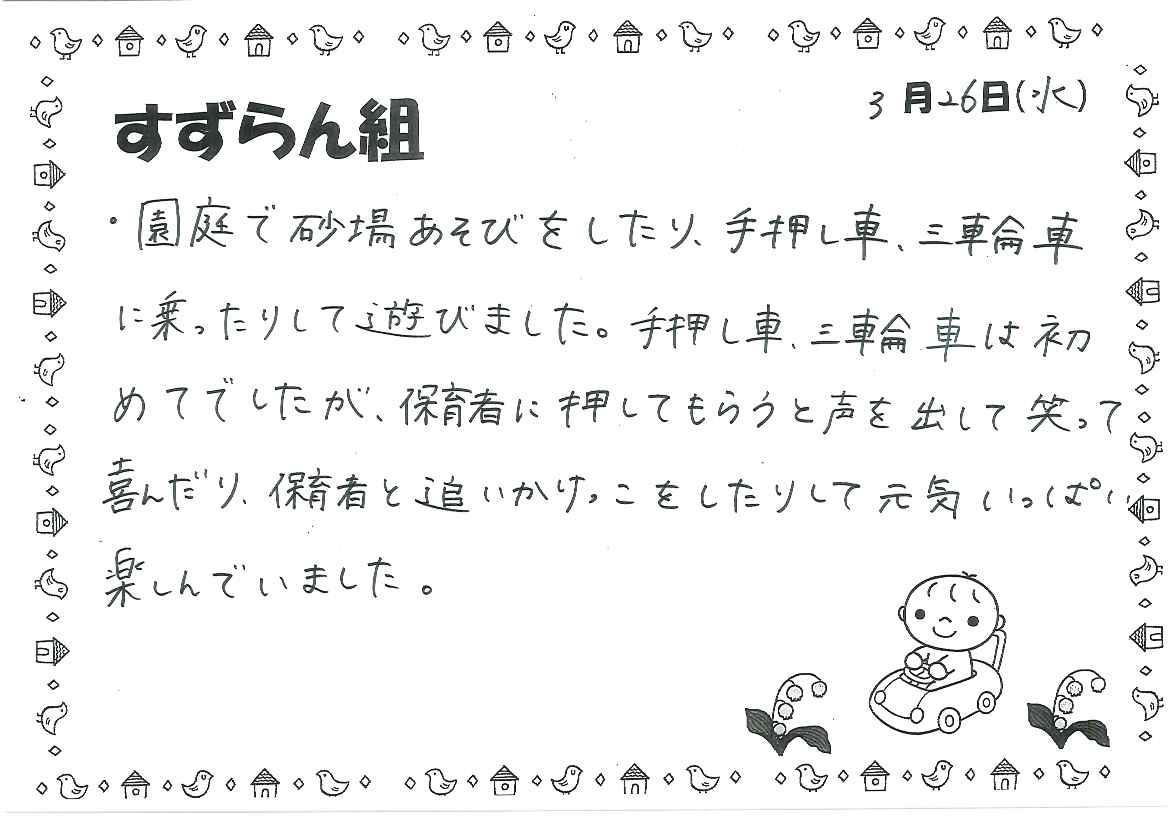 すずらん組
3月26日(水)
・園庭で砂場あそびをしたり、手押し車、三輪車
に乗ったりして遊びました。手押し車、三輪車は初
めてでしたが、保育者に押してもらうと声を出して笑って
喜んだり、保育者と追いかけっこをしたりして元気いっぱい
楽しんでいました。